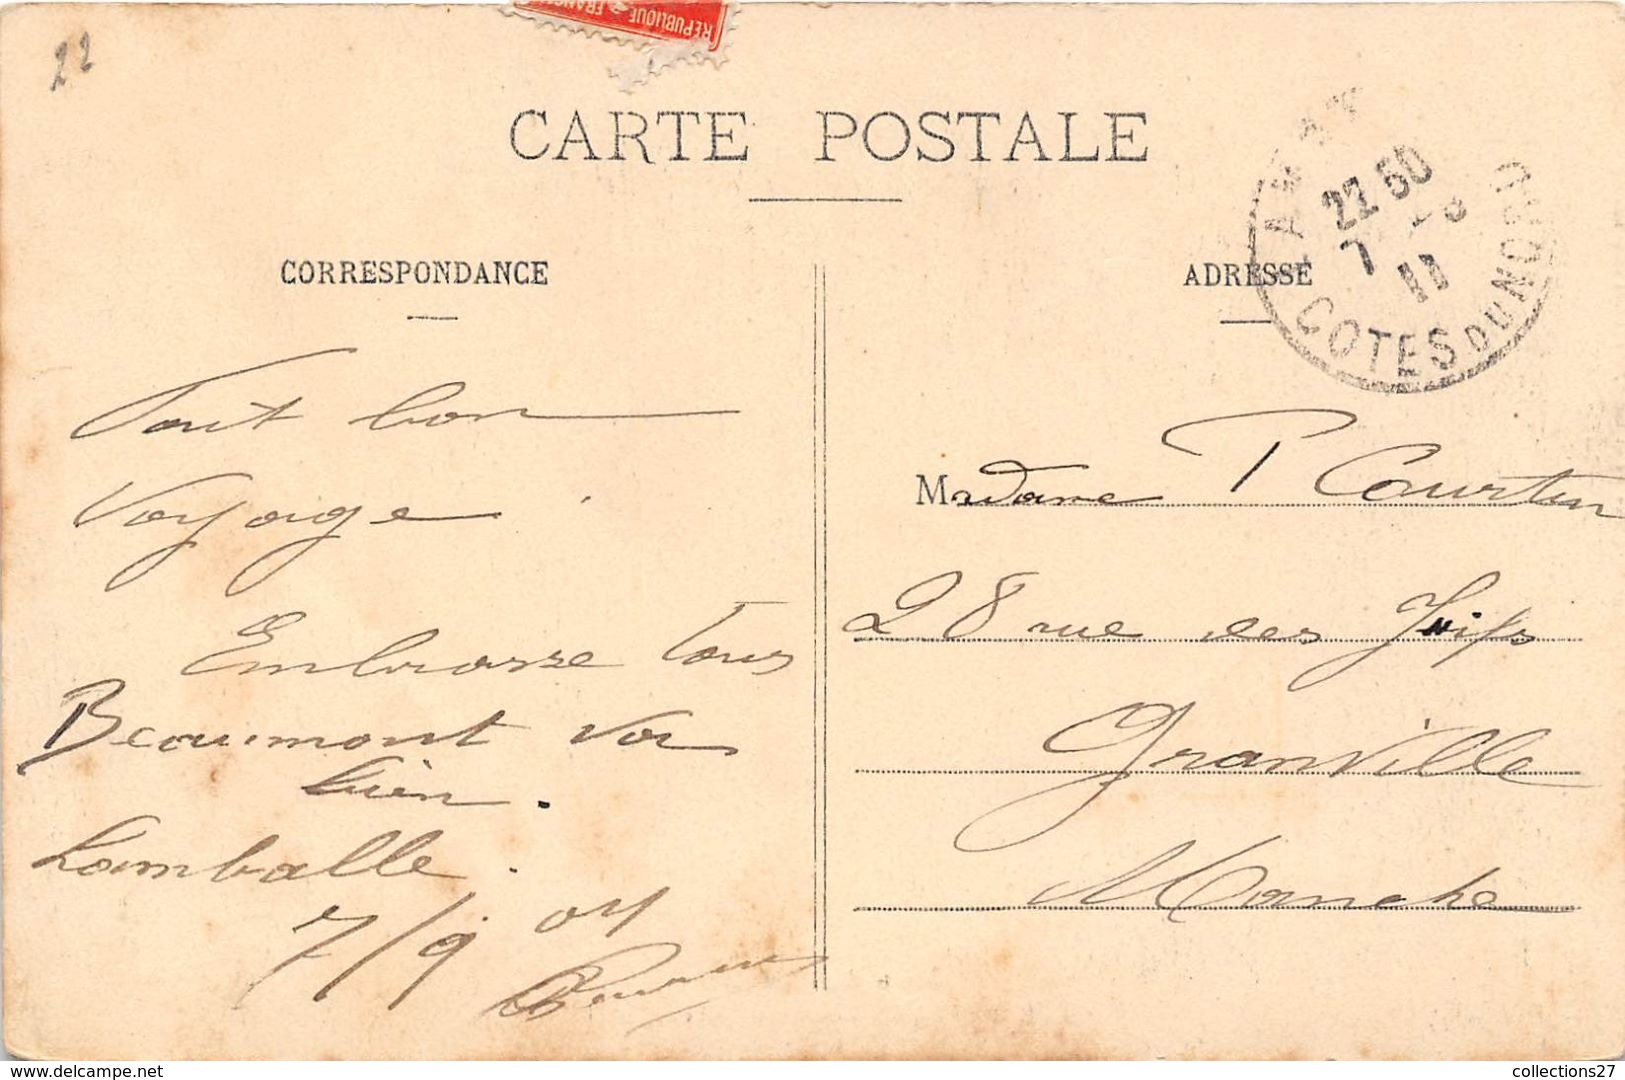 22
REPUBLIQUE FRANÇ
CARTE POSTALE
22 50
7 - 9
11
COTES DU NORD
CORRESPONDANCE
ADRESSE
Tout bon
Voyage
Embrasse Tous
Beaumont va
bien.
Lamballe.
7/9
Madame P Courtin
28 rue des Juifs
Granville
Manche
collections27